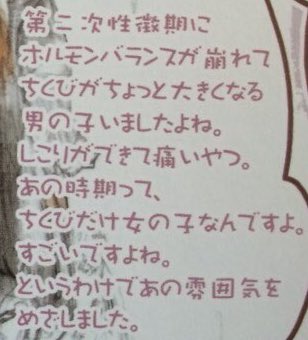 第二次性徴期に
ホルモンバランスが崩れて
ちくびがちょっと大きくなる
男の子いましたよね。
しこりができて痛いやつ。
あの時期って、
ちくびだけ女の子なんですよ。
すごいですよね。
というわけであの雰囲気を
めざしました。